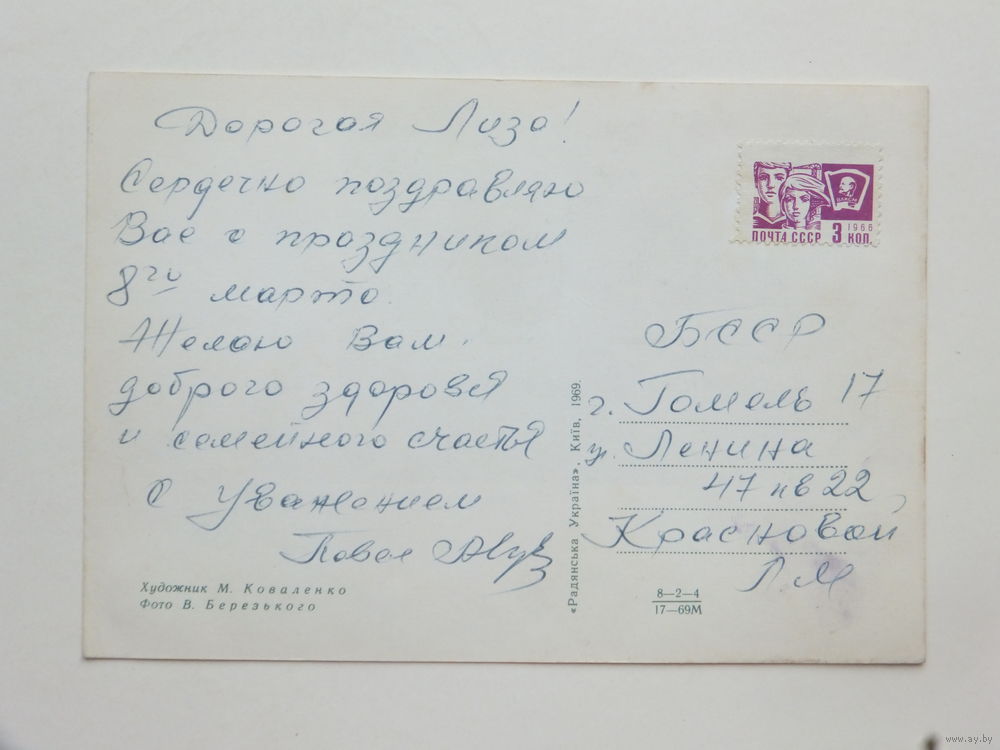 Дорогая Лиза!
Сердечно поздравляю
Вас с праздником
8го марта.
Желаю Вам.
доброго здоровья
и семейного счастья
С Уважением
Павел
Художник М. Коваленко
Фото В. Березького
«Радянська Україна», Київ, 1969.
ВЛКСМ
1966
ПОЧТА СССР 3 КОП.
БССР
г. Гомель 17
у. Ленина
47 кв 22
Красновой
Л. М
8—2—4
17—69М
www.ay.by